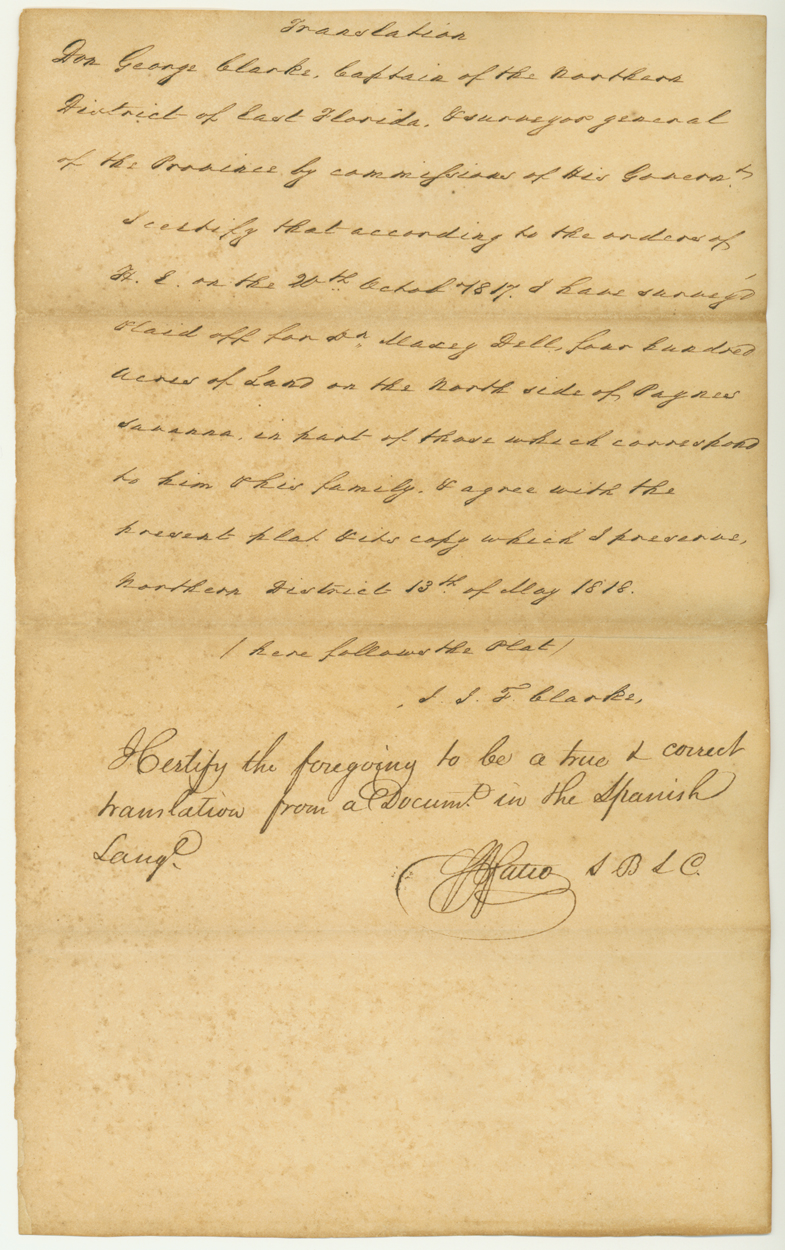 Translation
Don George Clarke, Captain of the Northern
District of East Florida, & surveyor general
of the Province by commissions of His Governt.
I certify that according to the orders of
H. E. on the 20th Octobr 1817. I have survey'd
& laid off for Dn Maxey Dell, four hundred
Acres of Land on the North side of Paynes
Savanna, in part of those which correspond
to him & his family. & agree with the
present plat & its copy which I preserve,
Northern District 13th of May 1818.
/ here follows the Plat /
Clarke,
I Certify the foregoing to be a true & correct
translation from a Documt. in the Spanish
Lange.
S B L C.